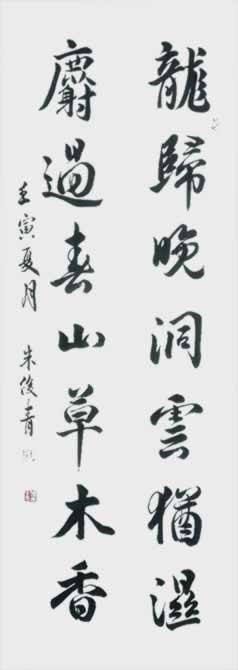 龍歸晚洞雲猶濕
麝過春山草木香
壬寅夏月 朱俊青